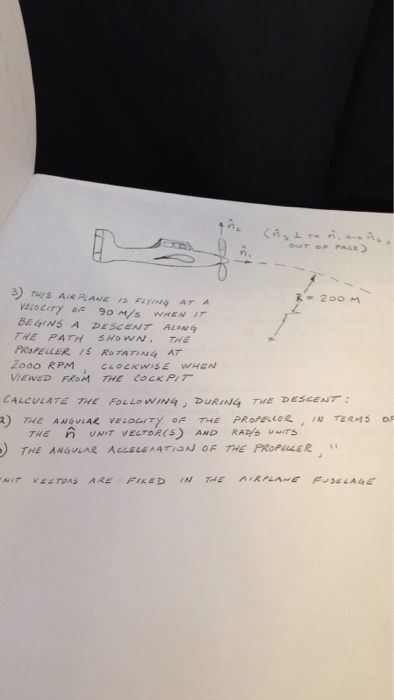 n̂₂
(n̂₃ ⊥ to n̂₁ AND n̂₂,
OUT OF PAGE)
n̂₁
R = 200 M
3) THIS AIRPLANE IS FLYING AT A
VELOCITY OF 90 M/S WHEN IT
BEGINS A DESCENT ALONG
THE PATH SHOWN. THE
PROPELLER IS ROTATING AT
2000 RPM, CLOCKWISE WHEN
VIEWED FROM THE COCKPIT
CALCULATE THE FOLLOWING, DURING THE DESCENT:
a) THE ANGULAR VELOCITY OF THE PROPELLER, IN TERMS OF
THE n̂ UNIT VECTOR(S) AND RAD/S UNITS
) THE ANGULAR ACCELERATION OF THE PROPELLER, "
NIT VECTORS ARE FIXED IN THE AIRPLANE FUSELAGE